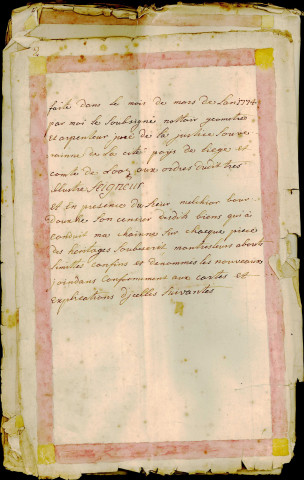 faite dans le mois de mars de Lan 1774
par moi le Soubsigné nottair geometre
et arpenteur juré de la justice Souve-
rainne de La cité pays de Liege et
comté de Looz aux ordres dudit tres
illustre Seigneur
et en presence du Sieur melchior
son censier esdits biens qui a
conduit ma chainne sur chaque piece
des heritages soubescrit monstre leurs abouts
limittes confins et denommés les nouveaux
joindans conformement aux cartes et
explications d'icelles Suivantes